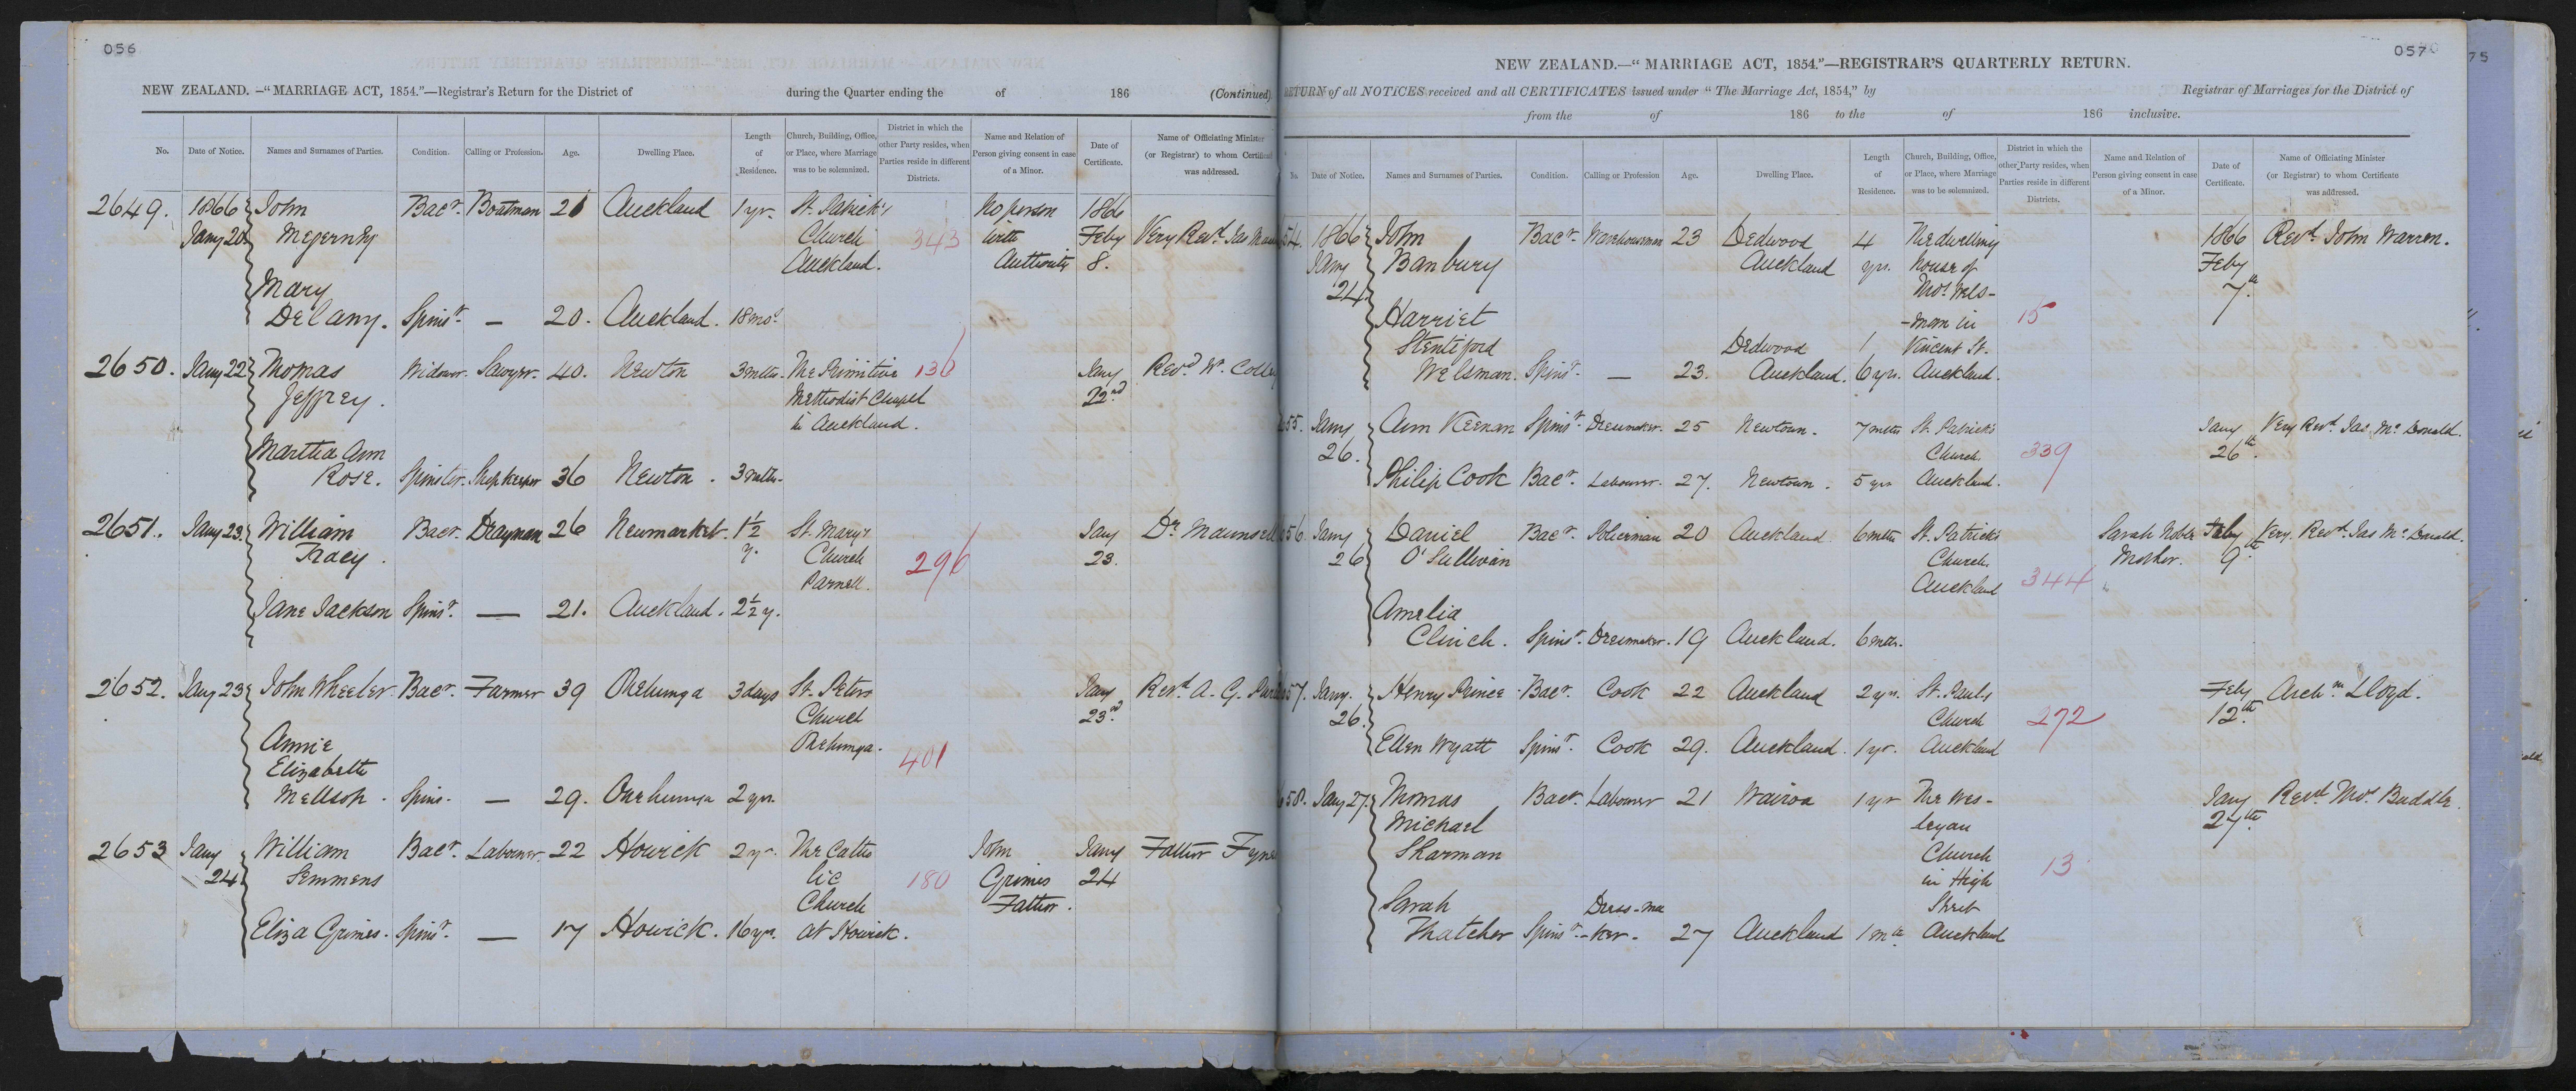 056
NEW ZEALAND. —“MARRIAGE ACT, 1854.”—Registrar's Return for the District of during the Quarter ending the of 186 (Continued)
No. Date of Notice. Names and Surnames of Parties. Condition. Calling or Profession. Age. Dwelling Place. Length of Residence. Church, Building, Office, or Place, where Marriage was to be solemnized. District in which the other Party resides, when Parties reside in different Districts. Name and Relation of Person giving consent in case of a Minor. Date of Certificate. Name of Officiating Minister (or Registrar) to whom Certificate was addressed.
2649. 1866 John Bacr. Boatman 21 Auckland 1 yr. St. Patrick's No person 1866
Jany 20 Church 343 with Feby Very Revd. Jas
Auckland. Authority 8.
Mary
Delany. Spinsr. — 20. Auckland. 18 mos.
2650. Jany 22 Thomas Widower. Sawyer. 40. Newton 3 mths. The Primitive 136 Jany Revd. W.
Jeffrey. Methodist Chapel 22nd
in Auckland.
Martha Ann
Rose. Spinster. Shopkeeper 36 Newton. 3 mths.
2651. Jany 23. William Bacr. Drayman 26 Newmarket. 1½ St. Mary's Jany Dr. Maunsell
Tracy. y. Church 296 23.
Parnell.
Jane Jackson Spinsr. — 21. Auckland. 2½ y.
2652. Jany 23 John Wheeler. Bacr. Farmer 39 Onehunga 3 days St. Peters Jany Revd. A. G.
Church 23rd.
Annie Onehunga. 401
Elizabeth
Mellsop. Spins. — 29. Onehunga 2 yrs.
2653 Jany William Bacr. Labourer. 22 Howick 2 yrs. The Catho John Jany Father
24 Semmens lic 180 Grimes 24
Church Father.
Eliza Grimes. Spinsr. — 17 Howick. 16 yrs. at Howick.
057
NEW ZEALAND.—“MARRIAGE ACT, 1854.”—REGISTRAR'S QUARTERLY RETURN.
RETURN of all NOTICES received and all CERTIFICATES issued under “The Marriage Act, 1854,” by Registrar of Marriages for the District of
from the of 186 to the of 186 inclusive.
No. Date of Notice. Names and Surnames of Parties. Condition. Calling or Profession Age. Dwelling Place. Length of Residence. Church, Building, Office, or Place, where Marriage was to be solemnized. District in which the other Party resides, when Parties reside in different Districts. Name and Relation of Person giving consent in case of a Minor. Date of Certificate. Name of Officiating Minister (or Registrar) to whom Certificate was addressed.
54. 1866 John Bacr. Warehouseman 23 Dedwood 4 The dwelling 1866 Revd. John Warren.
Jany Banbury Auckland yrs. house of Feby
24 Thos. Wels- 7th.
Harriet -man in 15
Stentiford Dedwood 1 Vincent St.
Welsman. Spinsr. — 23. Auckland. 6 yrs. Auckland.
55. Jany Ann Keenan Spinsr. Dressmaker. 25 Newtown. 7 mths St. Patrick's Jany Very Revd. Jas. McDonald.
26. Church 339 26th.
Philip Cook Bacr. Labourer. 27. Newtown. 5 yrs Auckland.
56 Jany Daniel Bacr. Policeman 20 Auckland 6 mths St. Patrick's Sarah Noble Feby Very Revd. Jas McDonald.
26 O'Sullivan Church Mother. 9th.
Auckland 344
Amelia
Clinch. Spinsr. Dressmaker. 19 Auckland. 6 mths.
57. Jany. Henry Prince Bacr. Cook 22 Auckland 2 yrs. St. Pauls Feby Archn. Lloyd.
26. Church 272 12th.
Ellen Wyatt Spinsr. Cook 29. Auckland. 1 yr. Auckland
58. Jany 27. Thomas Bacr. Labourer 21 Wairoa 1 yr The Wes- Jany Revd. Thos. Buddle.
Michael leyan 27th.
Sharman Church 13
in High
Sarah Dress-ma Street
Thatcher Spinsr. -ker. 27 Auckland 1 mth. Auckland
75